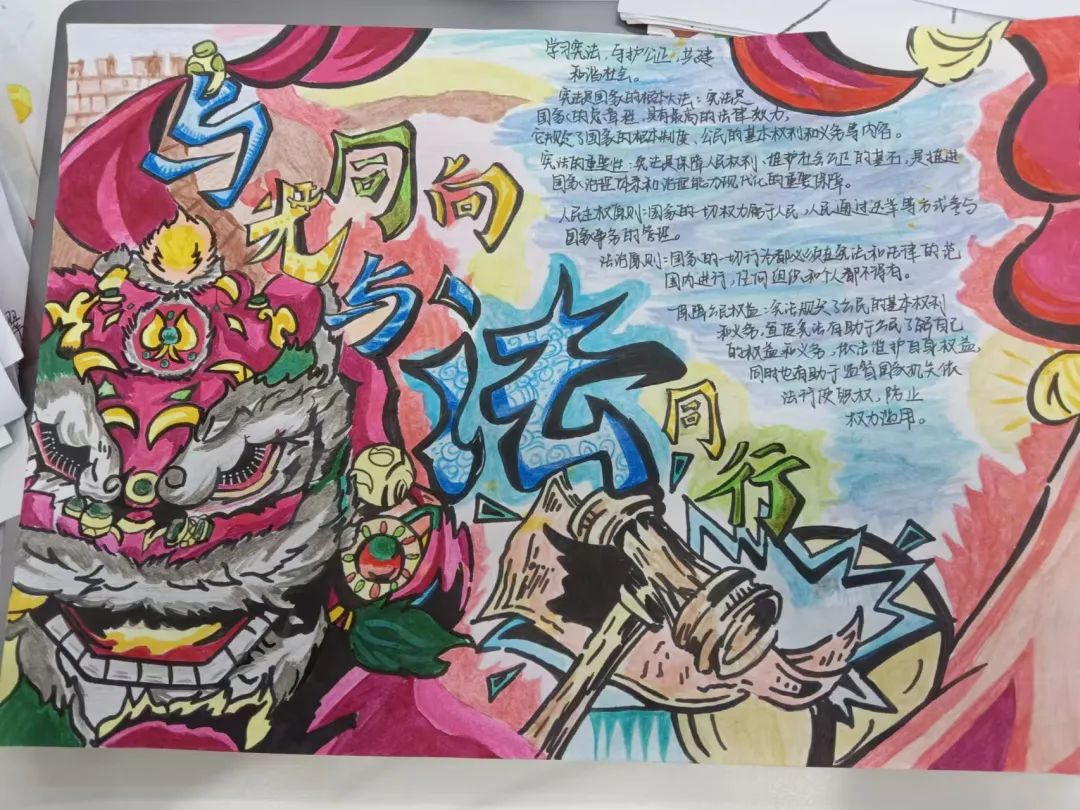 与光同向
与法同行
学习宪法，守护公正，共建
和谐社会。
宪法是国家的根本大法：宪法是
国家的总章程，具有最高的法律效力，
它规定了国家的根本制度、公民的基本权利和义务等内容。
宪法的重要性：宪法是保障人民权利、维护社会公正的基石，是推进
国家治理体系和治理能力现代化的重要保障。
人民主权原则：国家的一切权力属于人民，人民通过选举等方式参与
国家事务的管理。
法治原则：国家的一切行为都必须在宪法和法律的范
围内进行，任何组织和个人都不得有。
保障公民权益：宪法规定了公民的基本权利
和义务，宣传宪法有助于公民了解自己
的权益和义务，依法维护自身权益，
同时也有助于监督国家机关依
法行使职权，防止
权力滥用。